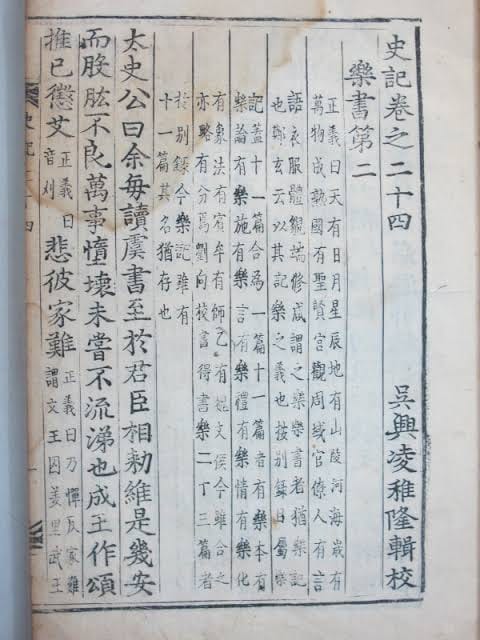 史記卷之二十四 吳興凌稚隆輯校
樂書第二
正義曰天有日月星辰地有山陵河海歲有
萬物成熟國有聖賢宮觀周域官僚人有言
語衣服體貌端修咸謂之樂樂書者猶樂記
也鄭玄云以其記樂之義也按別錄曰屬樂
記蓋十一篇合爲一篇十一篇者有樂本有
樂論有樂施有樂言有樂禮有樂情有樂化
有象法有賓牟有師乙有文侯今雖合之
亦略有分焉劉向校書得書樂二丁三篇者
按別錄今樂記雖有
十一篇其名猶存也
太史公曰余每讀虞書至於君臣相勑維是幾安
而股肱不良萬事墮壞未嘗不流涕也成王作頌
推已懲艾正義曰音刈悲彼家難正義曰乃憚反家難謂文王囚羑里武王